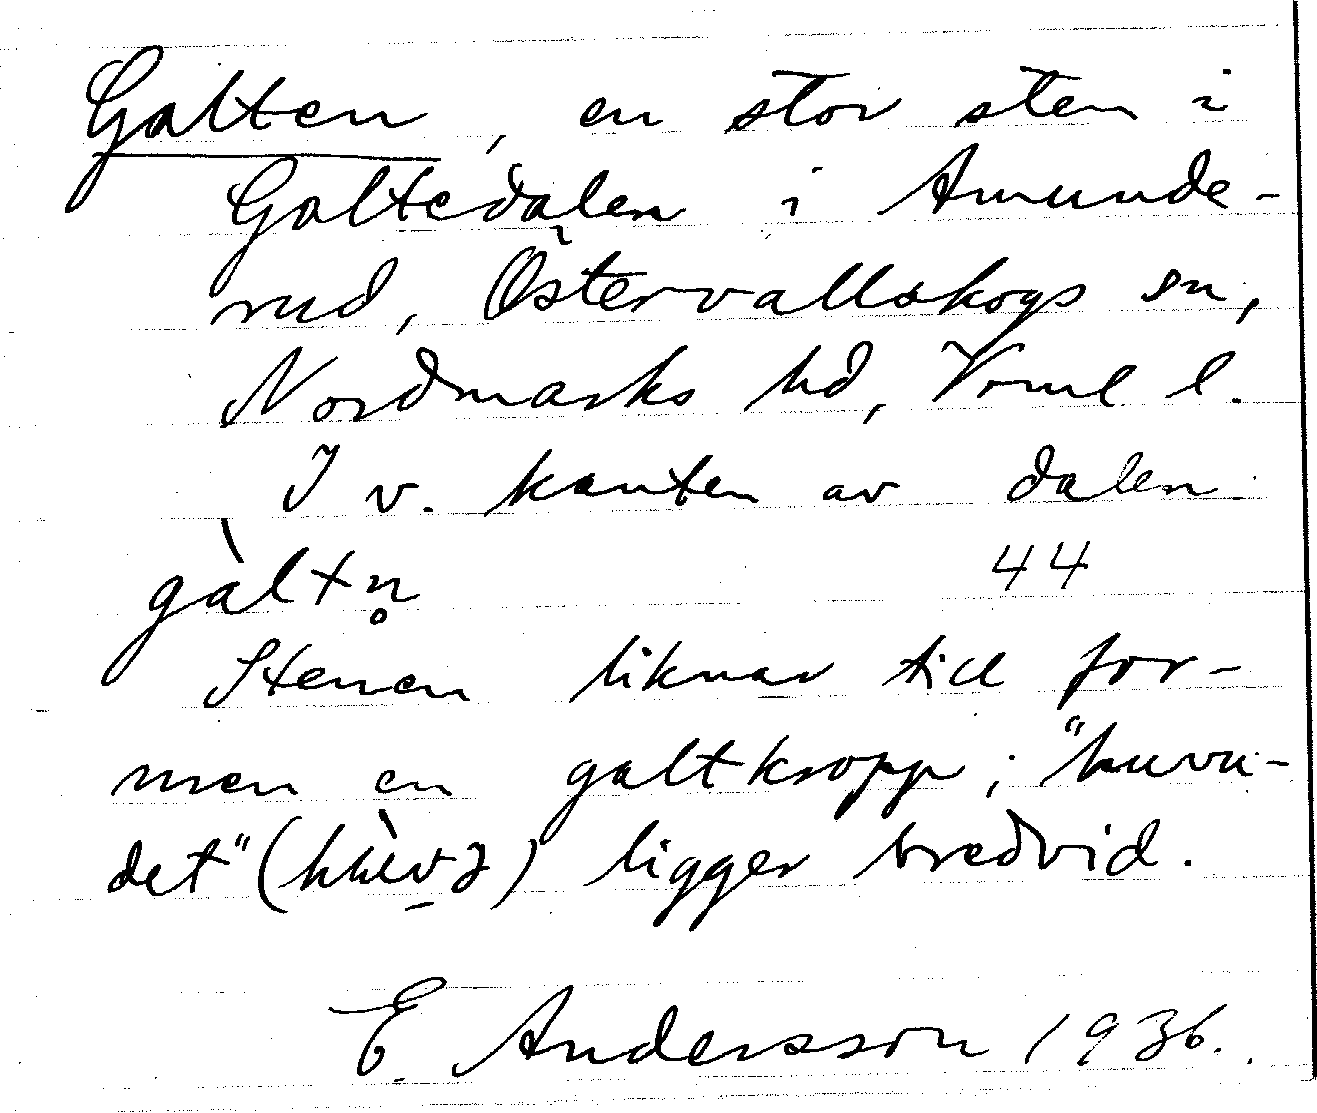 Galten, en stor sten i
Galtedalen i Amunde-
rud, Östervallskogs sn,
Nordmarks hd, Vrml l.
I v. kanten av dalen.
gàltn̥ 44
Stenen liknar till for-
men en galtkropp; "huvu-
det" ligger bredvid.
E. Andersson 1936.